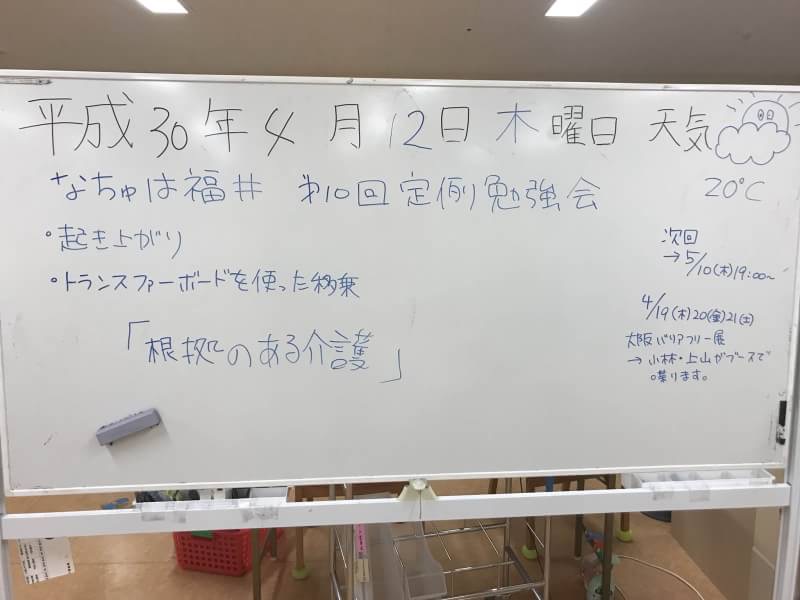 平成30年4月12日 木曜日 天気
20℃
なちゅは福井 第10回定例勉強会
・起き上がり
・トランスファーボードを使った移乗
「根拠のある介護」
次回
→5/10(木)19:00〜
4/19(木)20(金)21(土)
大阪バリアフリー展
→ 小林・上山がブースで
喋ります。